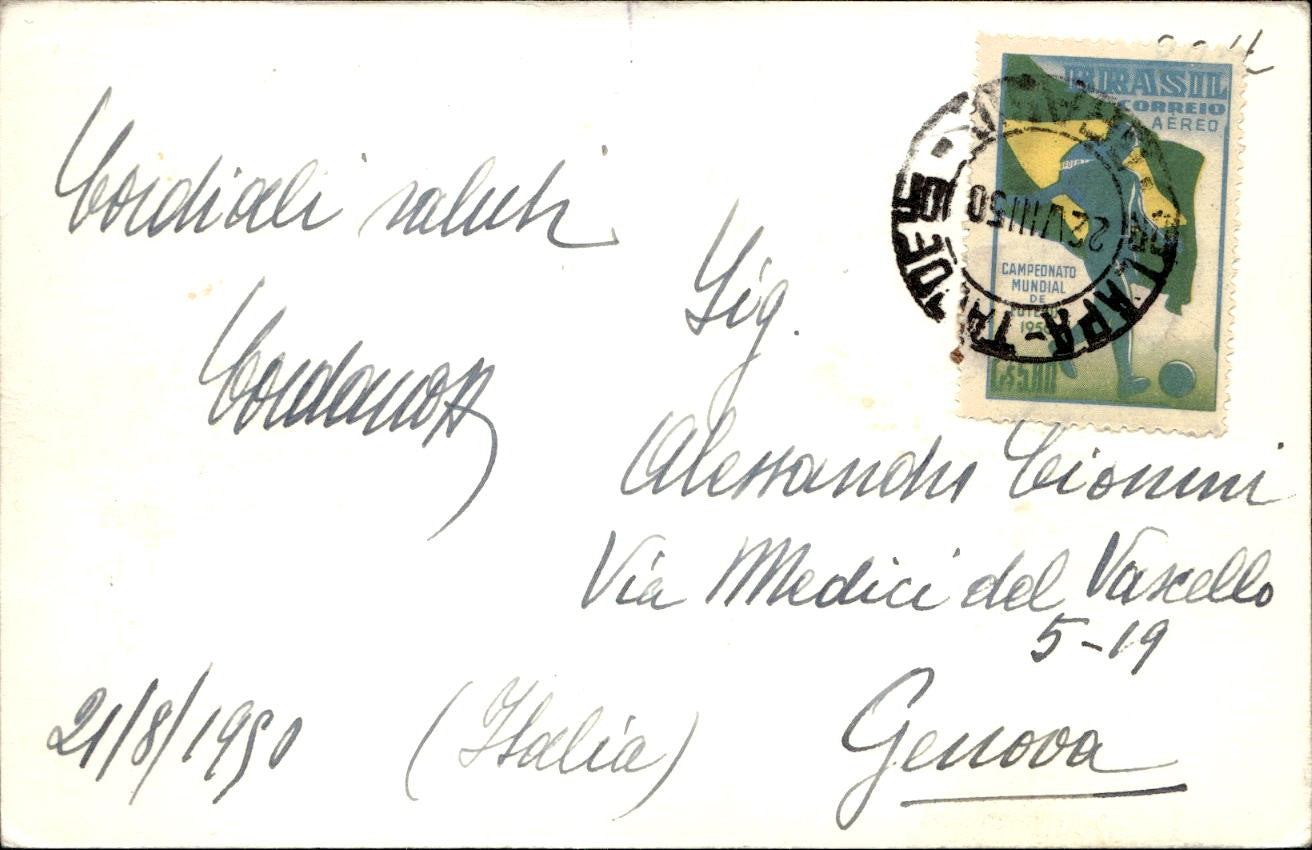 Cordiali saluti
Sig.
Alessandro Cionini
Via Medici del Vascello
5-19
Genova
(Italia)
21/8/1950
BRASIL
CORREIO
AÉREO
CAMPEONATO
MUNDIAL
DE
FUTEBOL
1950
Cr$5,00
VIII 50
LAPA-